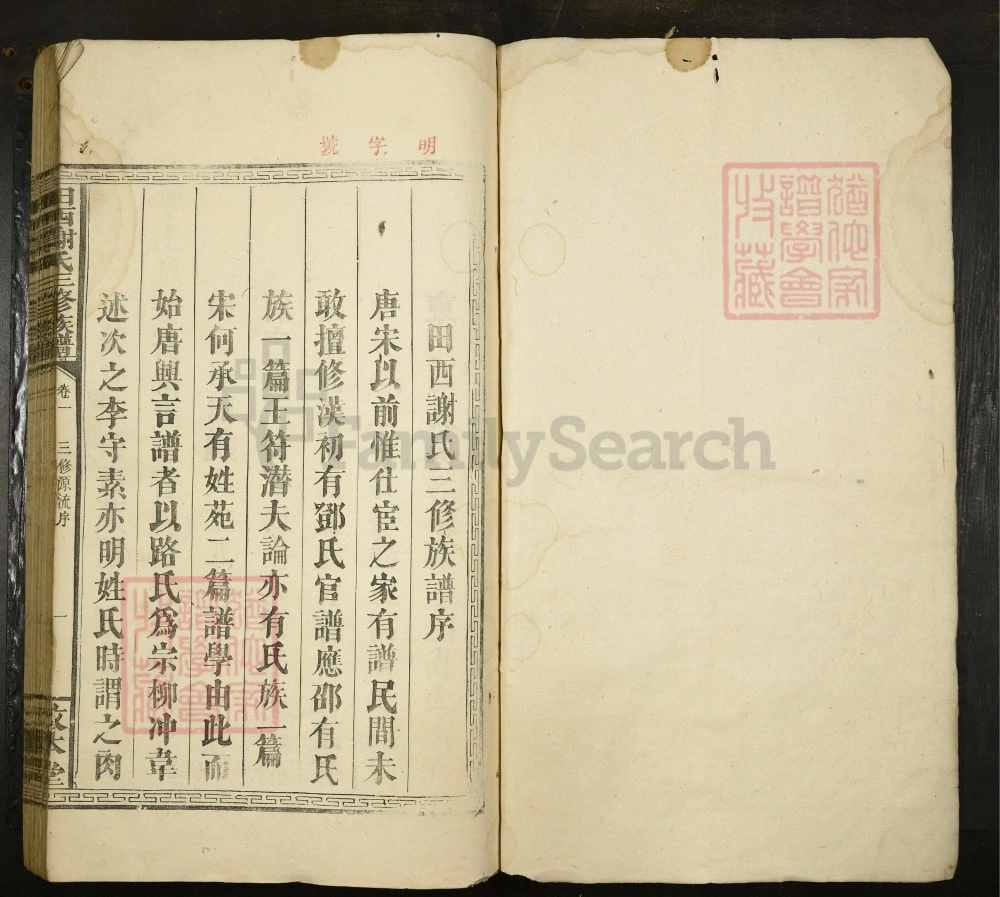 猶他家
譜學會
收藏
明字號
田西謝氏三修族譜序
唐宋以前惟仕宦之家有譜民間未
敢擅修漢初有鄧氏官譜應邵有氏
族一篇王符潛夫論亦有氏族一篇
宋何承天有姓苑二篇譜學由此而
始唐興言譜者以路氏爲宗柳冲韋
述次之李守素亦明姓氏時謂之肉
田西謝氏三修族譜
卷一
三修源流序
一
本堂
猶他家
譜學會
收藏
FamilySearch